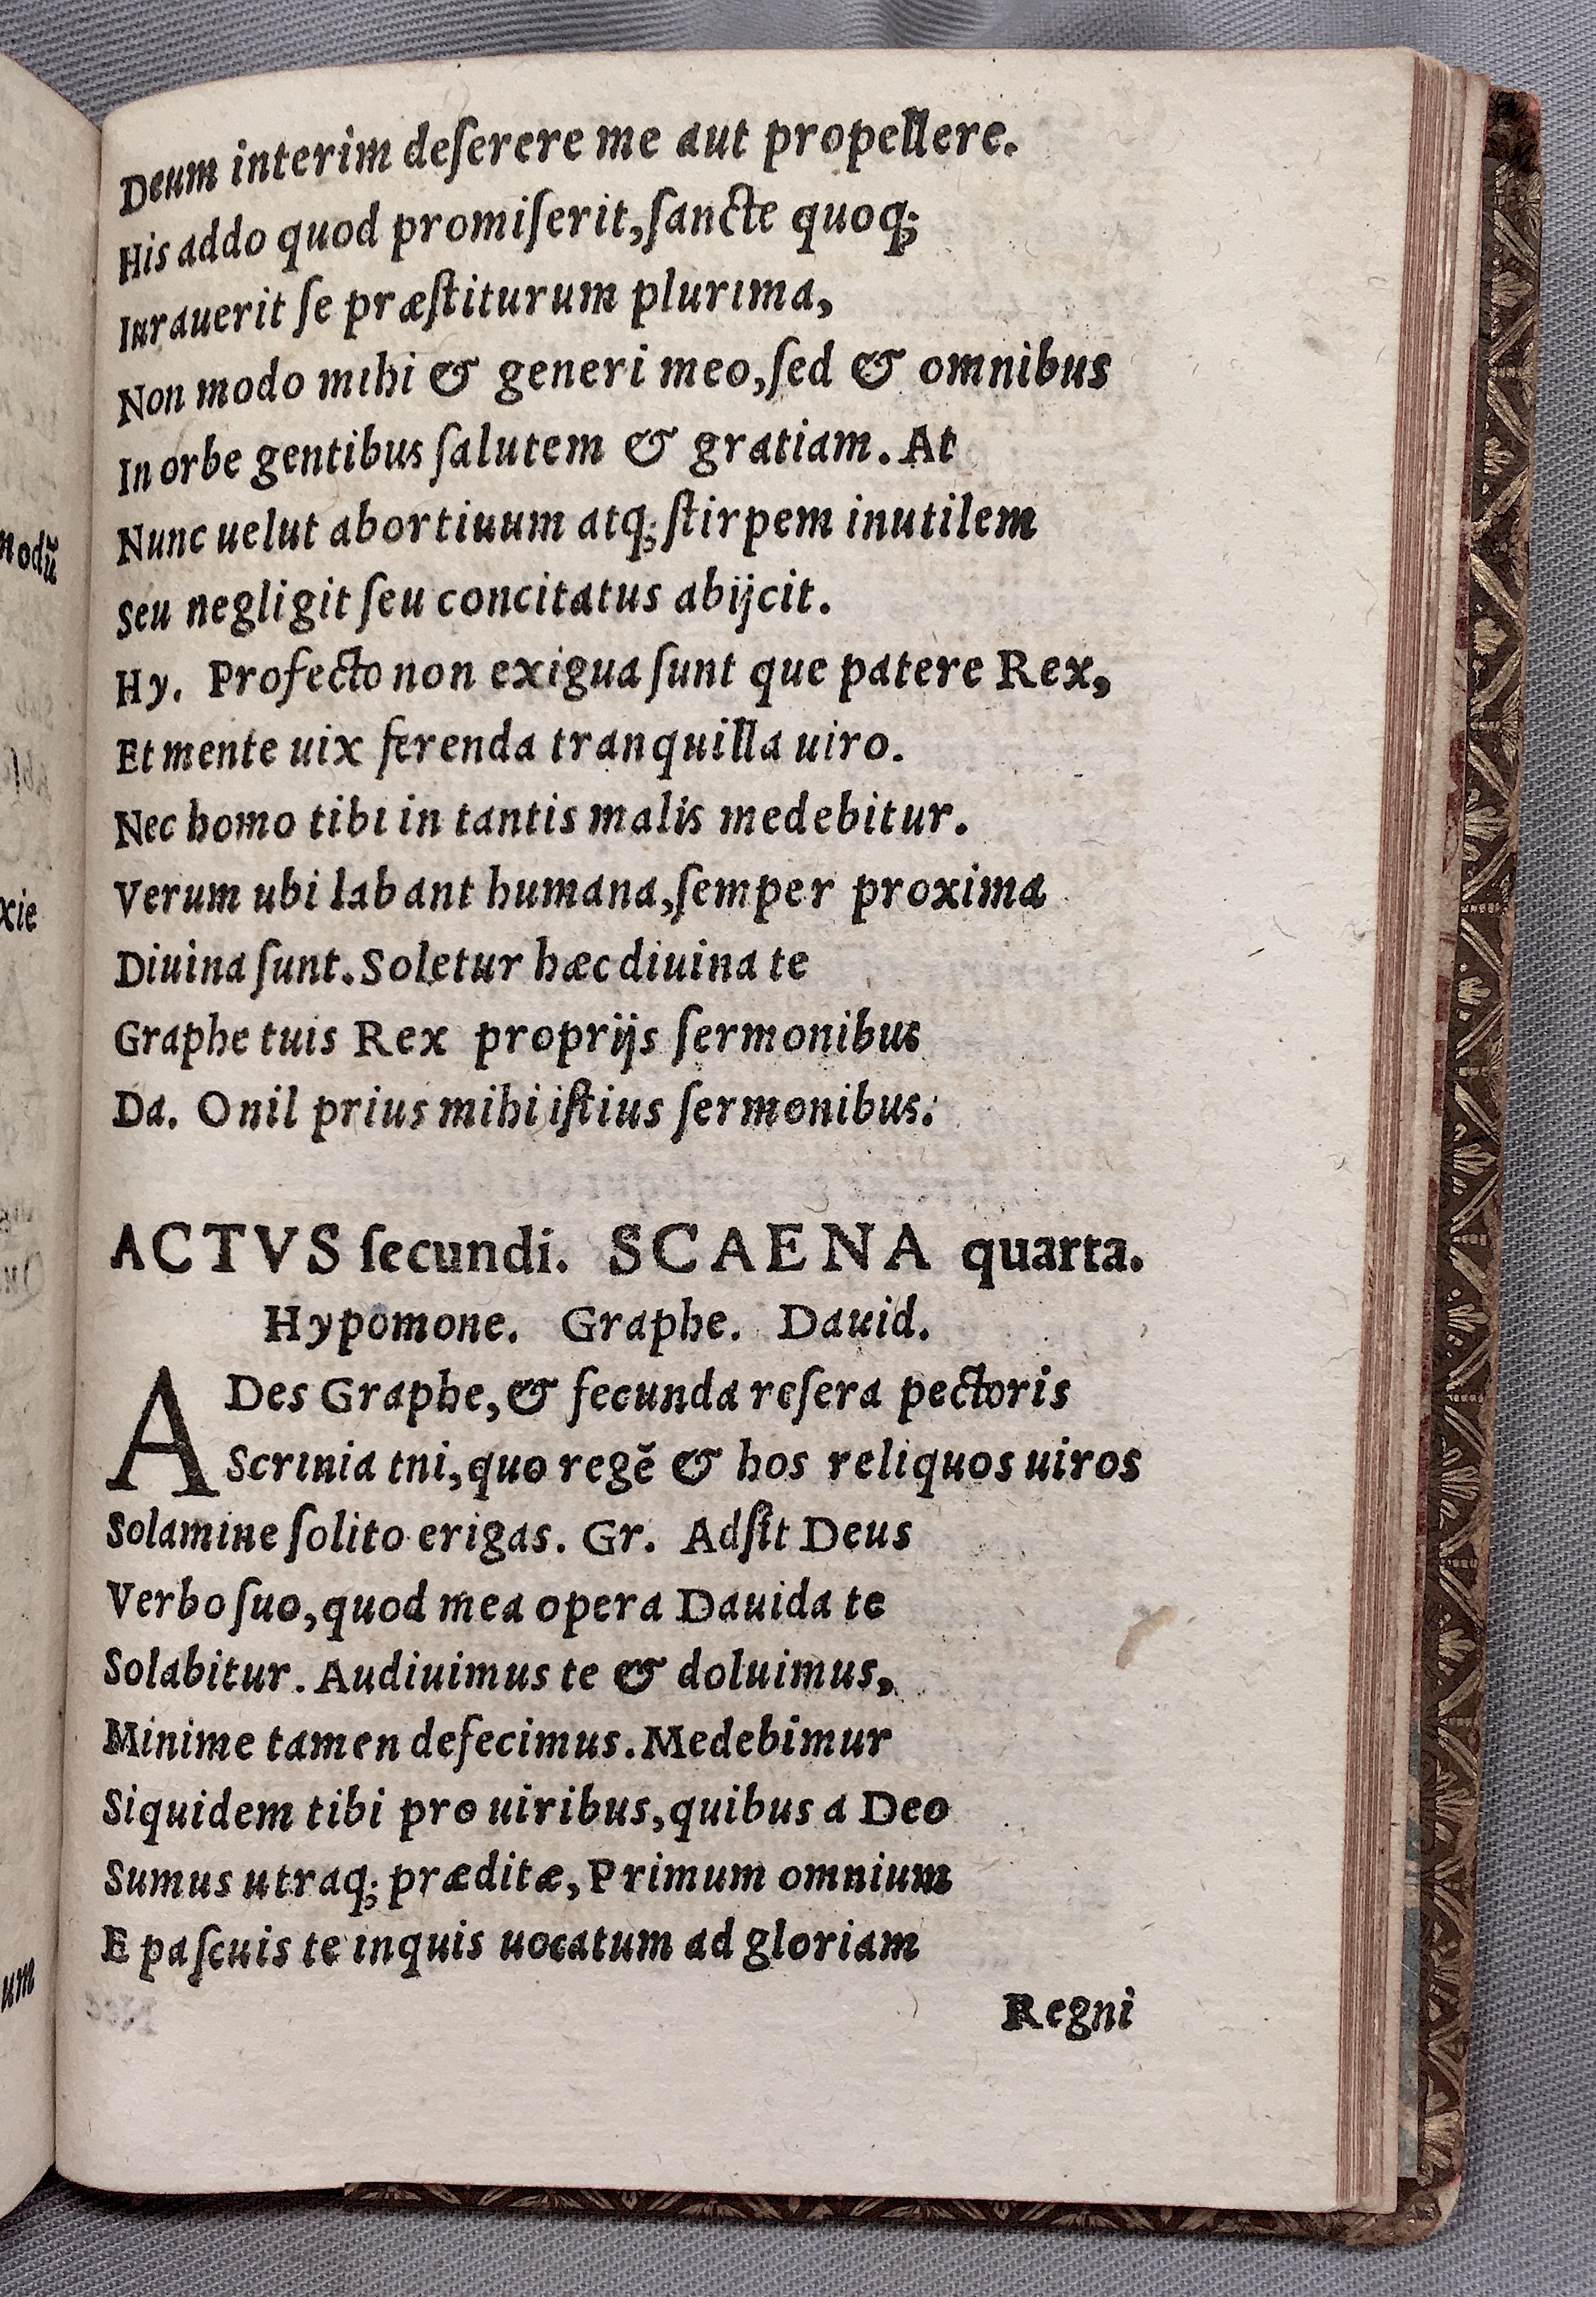 Deum interim deſerere me aut propellere.
His addo quod promiſerit,ſancte quoq;
Iurauerit ſe præſtiturum plurima,
Non modo mihi & generi meo,ſed & omnibus
In orbe gentibus ſalutem & gratiam. At
Nunc uelut abortiuum atq; ſtirpem inutilem
Seu negligit ſeu concitatus abijcit.
Hy. Profecto non exigua ſunt que patere Rex,
Et mente uix ferenda tranquilla uiro.
Nec homo tibi in tantis malis medebitur.
Verum ubi labant humana,ſemper proxima
Diuina ſunt. Soletur hæc diuina te
Graphe tuis Rex proprijs ſermonibus
Da. O nil prius mihi iſtius ſermonibus.
ACTVS ſecundi. SCAENA quarta.
Hypomone. Graphe. Dauid.
ADes Graphe,& fecunda reſera pectoris
Scrinia tni,quo regẽ & hos reliquos uiros
Solamine ſolito erigas. Gr. Adſit Deus
Verbo ſuo,quod mea opera Dauida te
Solabitur. Audiuimus te & doluimus,
Minime tamen defecimus. Medebimur
Siquidem tibi pro uiribus,quibus a Deo
Sumus utraq; præditæ, Primum omnium
E paſcuis te inquis uocatum ad gloriam
Regni
nodũ
xie
um